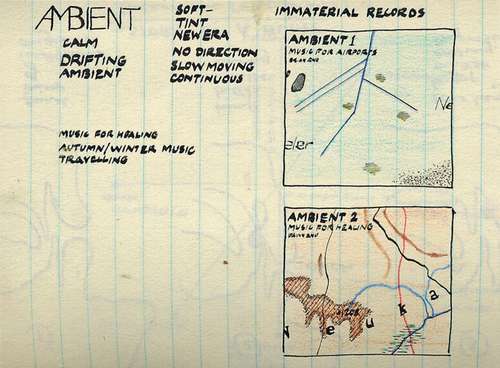 AMBIENT
CALM
DRIFTING
AMBIENT
SOFT-
TINT
NEW ERA
NO DIRECTION
SLOW MOVING
CONTINUOUS
MUSIC FOR HEALING
AUTUMN/WINTER MUSIC
TRAVELLING
IMMATERIAL RECORDS
AMBIENT 1
MUSIC FOR AIRPORTS
BRIAN ENO
Ne
eler
AMBIENT 2
MUSIC FOR HEALING
BRIAN ENO
a
k
u
e